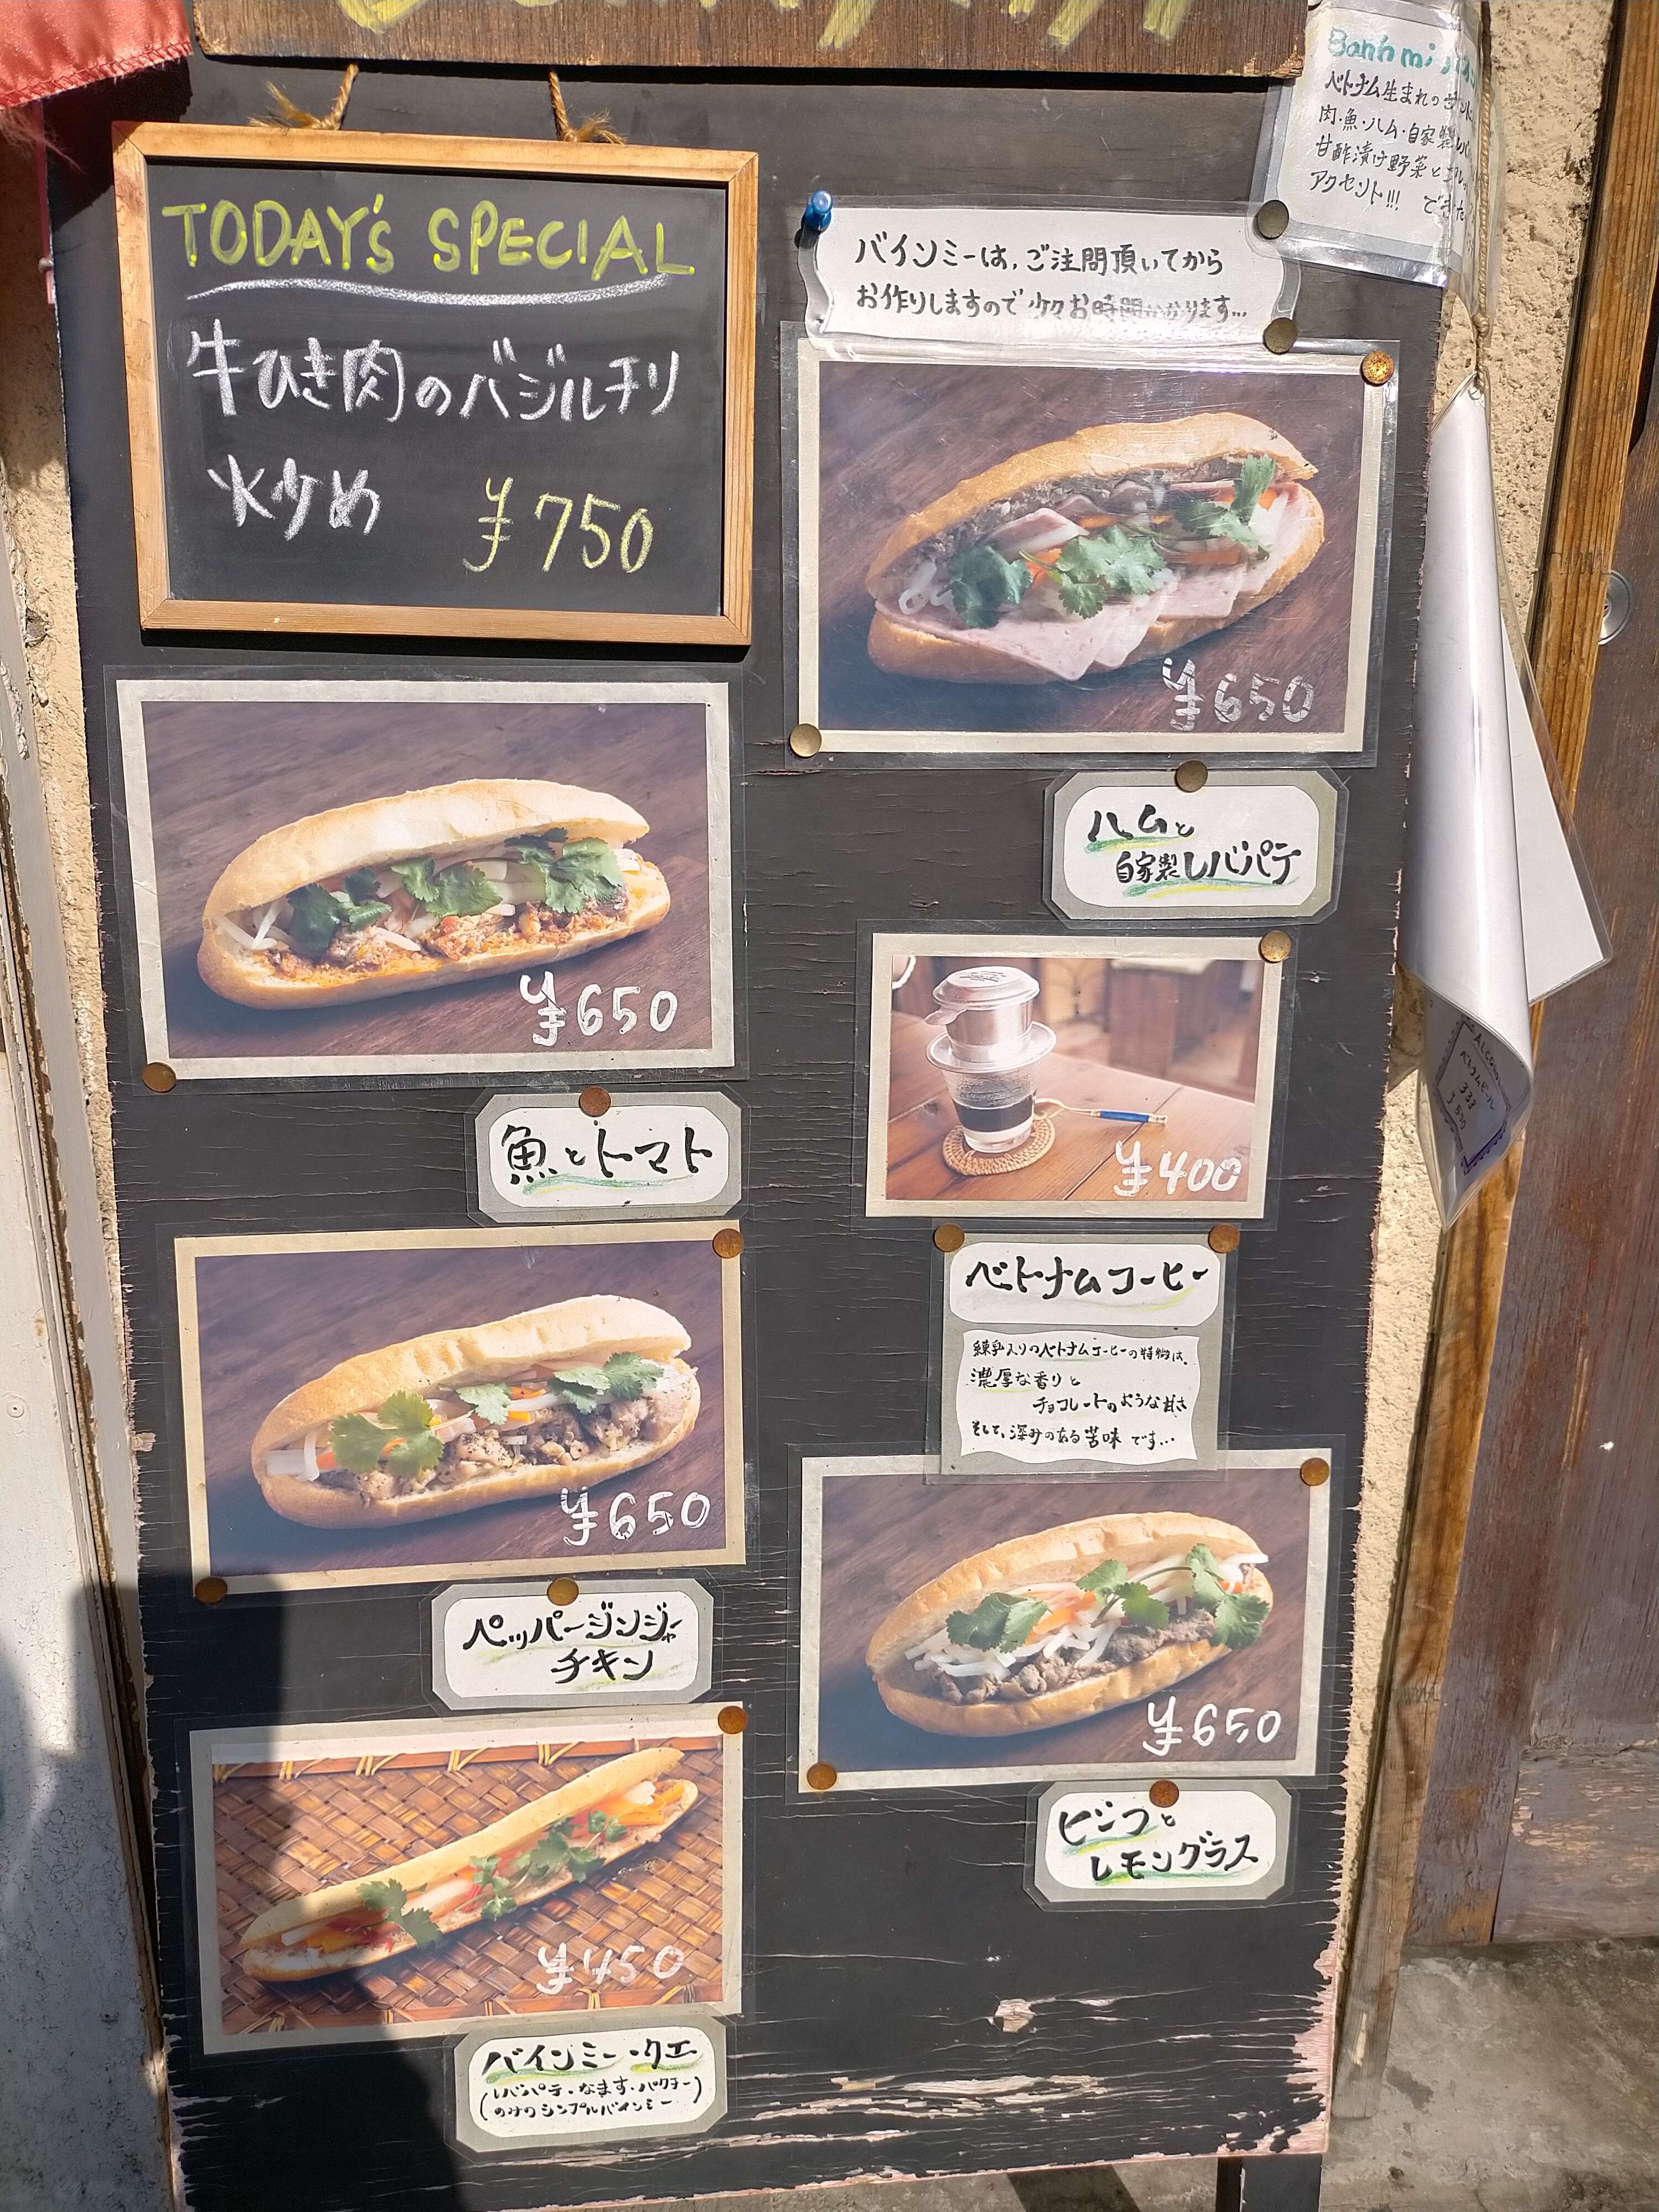 TODAY'S SPECIAL
牛ひき肉のバジルチリ
炒め ¥750
Banh mi
ベトナム生まれの
肉・魚・ハム・自家製
甘酢漬け野菜と
アクセント!!!
バインミーは、ご注問頂いてから
お作りしますので少々お時間かかります…
¥650
ハムと
自家製レバパテ
¥650
魚とトマト
¥400
ベトナムコーヒー
練乳入りのベトナムコーヒーの特徴は、
濃厚な香りと
チョコレートのような甘さ
そして、深みのある苦味です…
¥650
ペッパージンジャー
チキン
¥650
ビーフと
レモングラス
¥450
バインミー・クエ
(レバパテ・なます・パクチー
のみのシンプルバインミー)
ALCOHOL
ベトナムビール
333